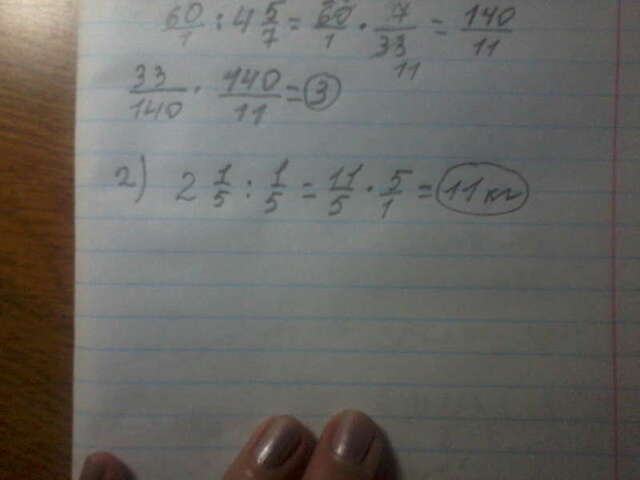 60/1 : 4 5/7 = 60/1 · 7/33 11 = 140/11
33/140 · 140/11 = 3
2) 2 1/5 : 1/5 = 11/5 · 5/1 = 11 кг